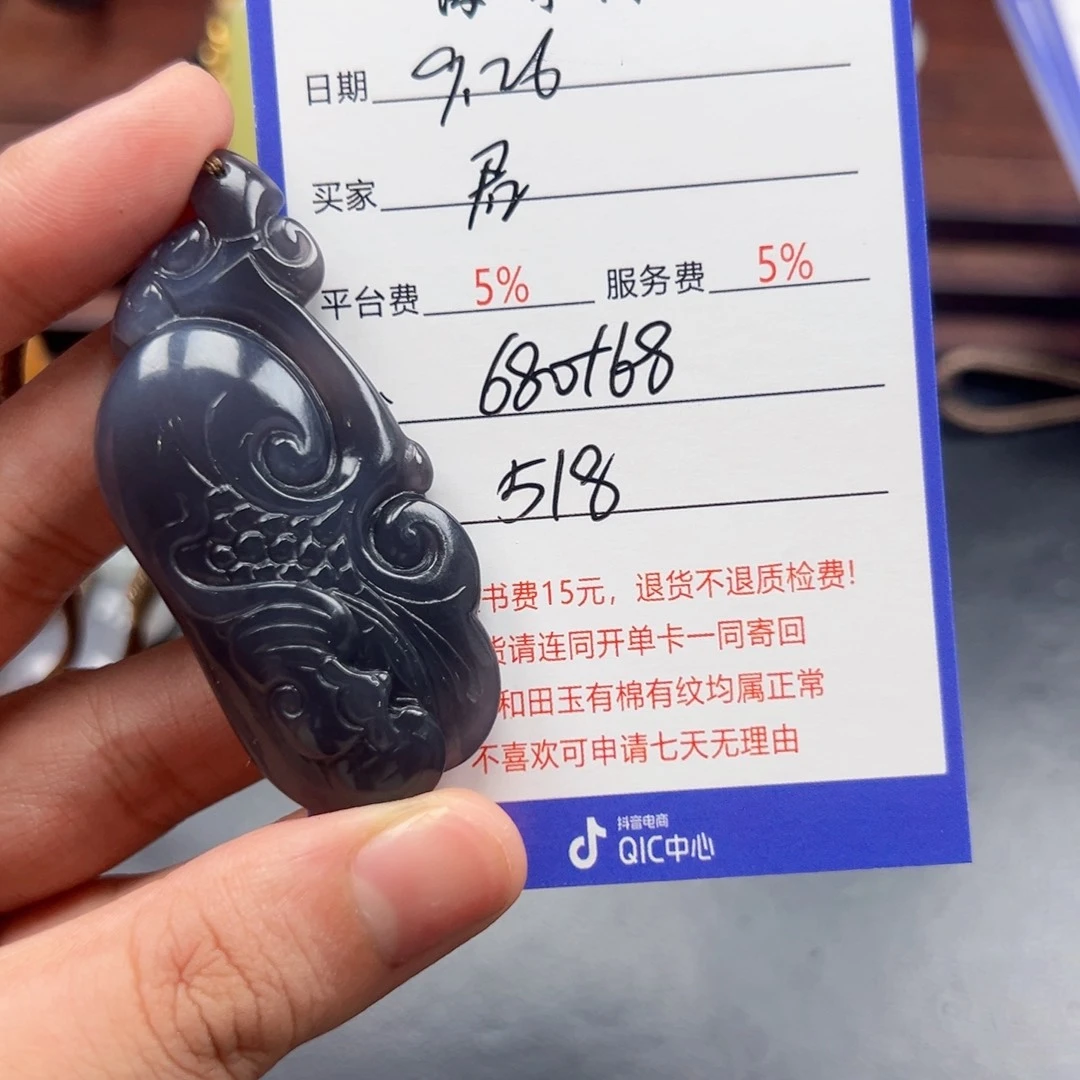 日期 9.26
买家 君
平台费 5% 服务费 5%
680+68
518
书费15元，退货不退质检费!
货请连同开单卡一同寄回
和田玉有棉有纹均属正常
不喜欢可申请七天无理由
抖音电商
QIC中心